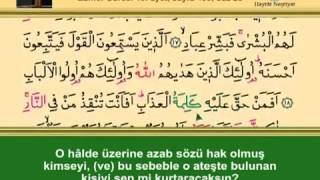 Hayrât Neşriyat
لَهُمُ الْبُشْرٰى فَبَشِّرْ عِبَادِ ﴿١٧﴾ اَلَّذِينَ يَسْتَمِعُونَ الْقَوْلَ فَيَتَّبِعُونَ
اَحْسَنَهُ اُولٰئِكَ الَّذِينَ هَدٰيهُمُ اللّٰهُ وَاُولٰئِكَ هُمْ اُولُوا الْاَلْبَابِ
﴿١٨﴾ اَفَمَنْ حَقَّ عَلَيْهِ كَلِمَةُ الْعَذَابِ اَفَاَنْتَ تُنْقِذُ مَنْ فِي النَّارِ
O hâlde üzerine azab sözü hak olmuş
kimseyi, (ve) bu sebeble o ateşte bulunan
kişiyi sen mi kurtaracaksın?